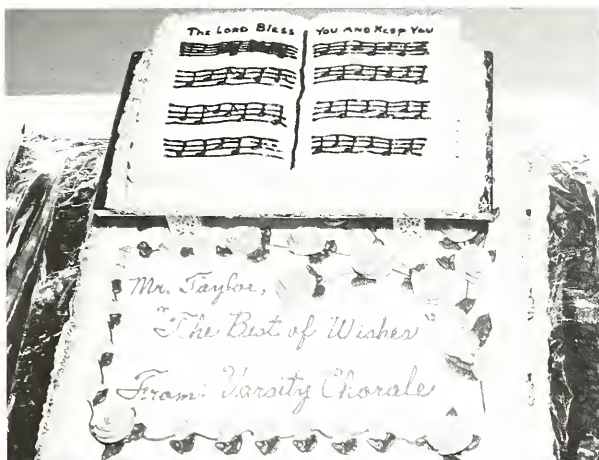 The Lord Bless You and Keep You
Mr. Taylor,
"The Best of Wishes"
From: Varsity Chorale